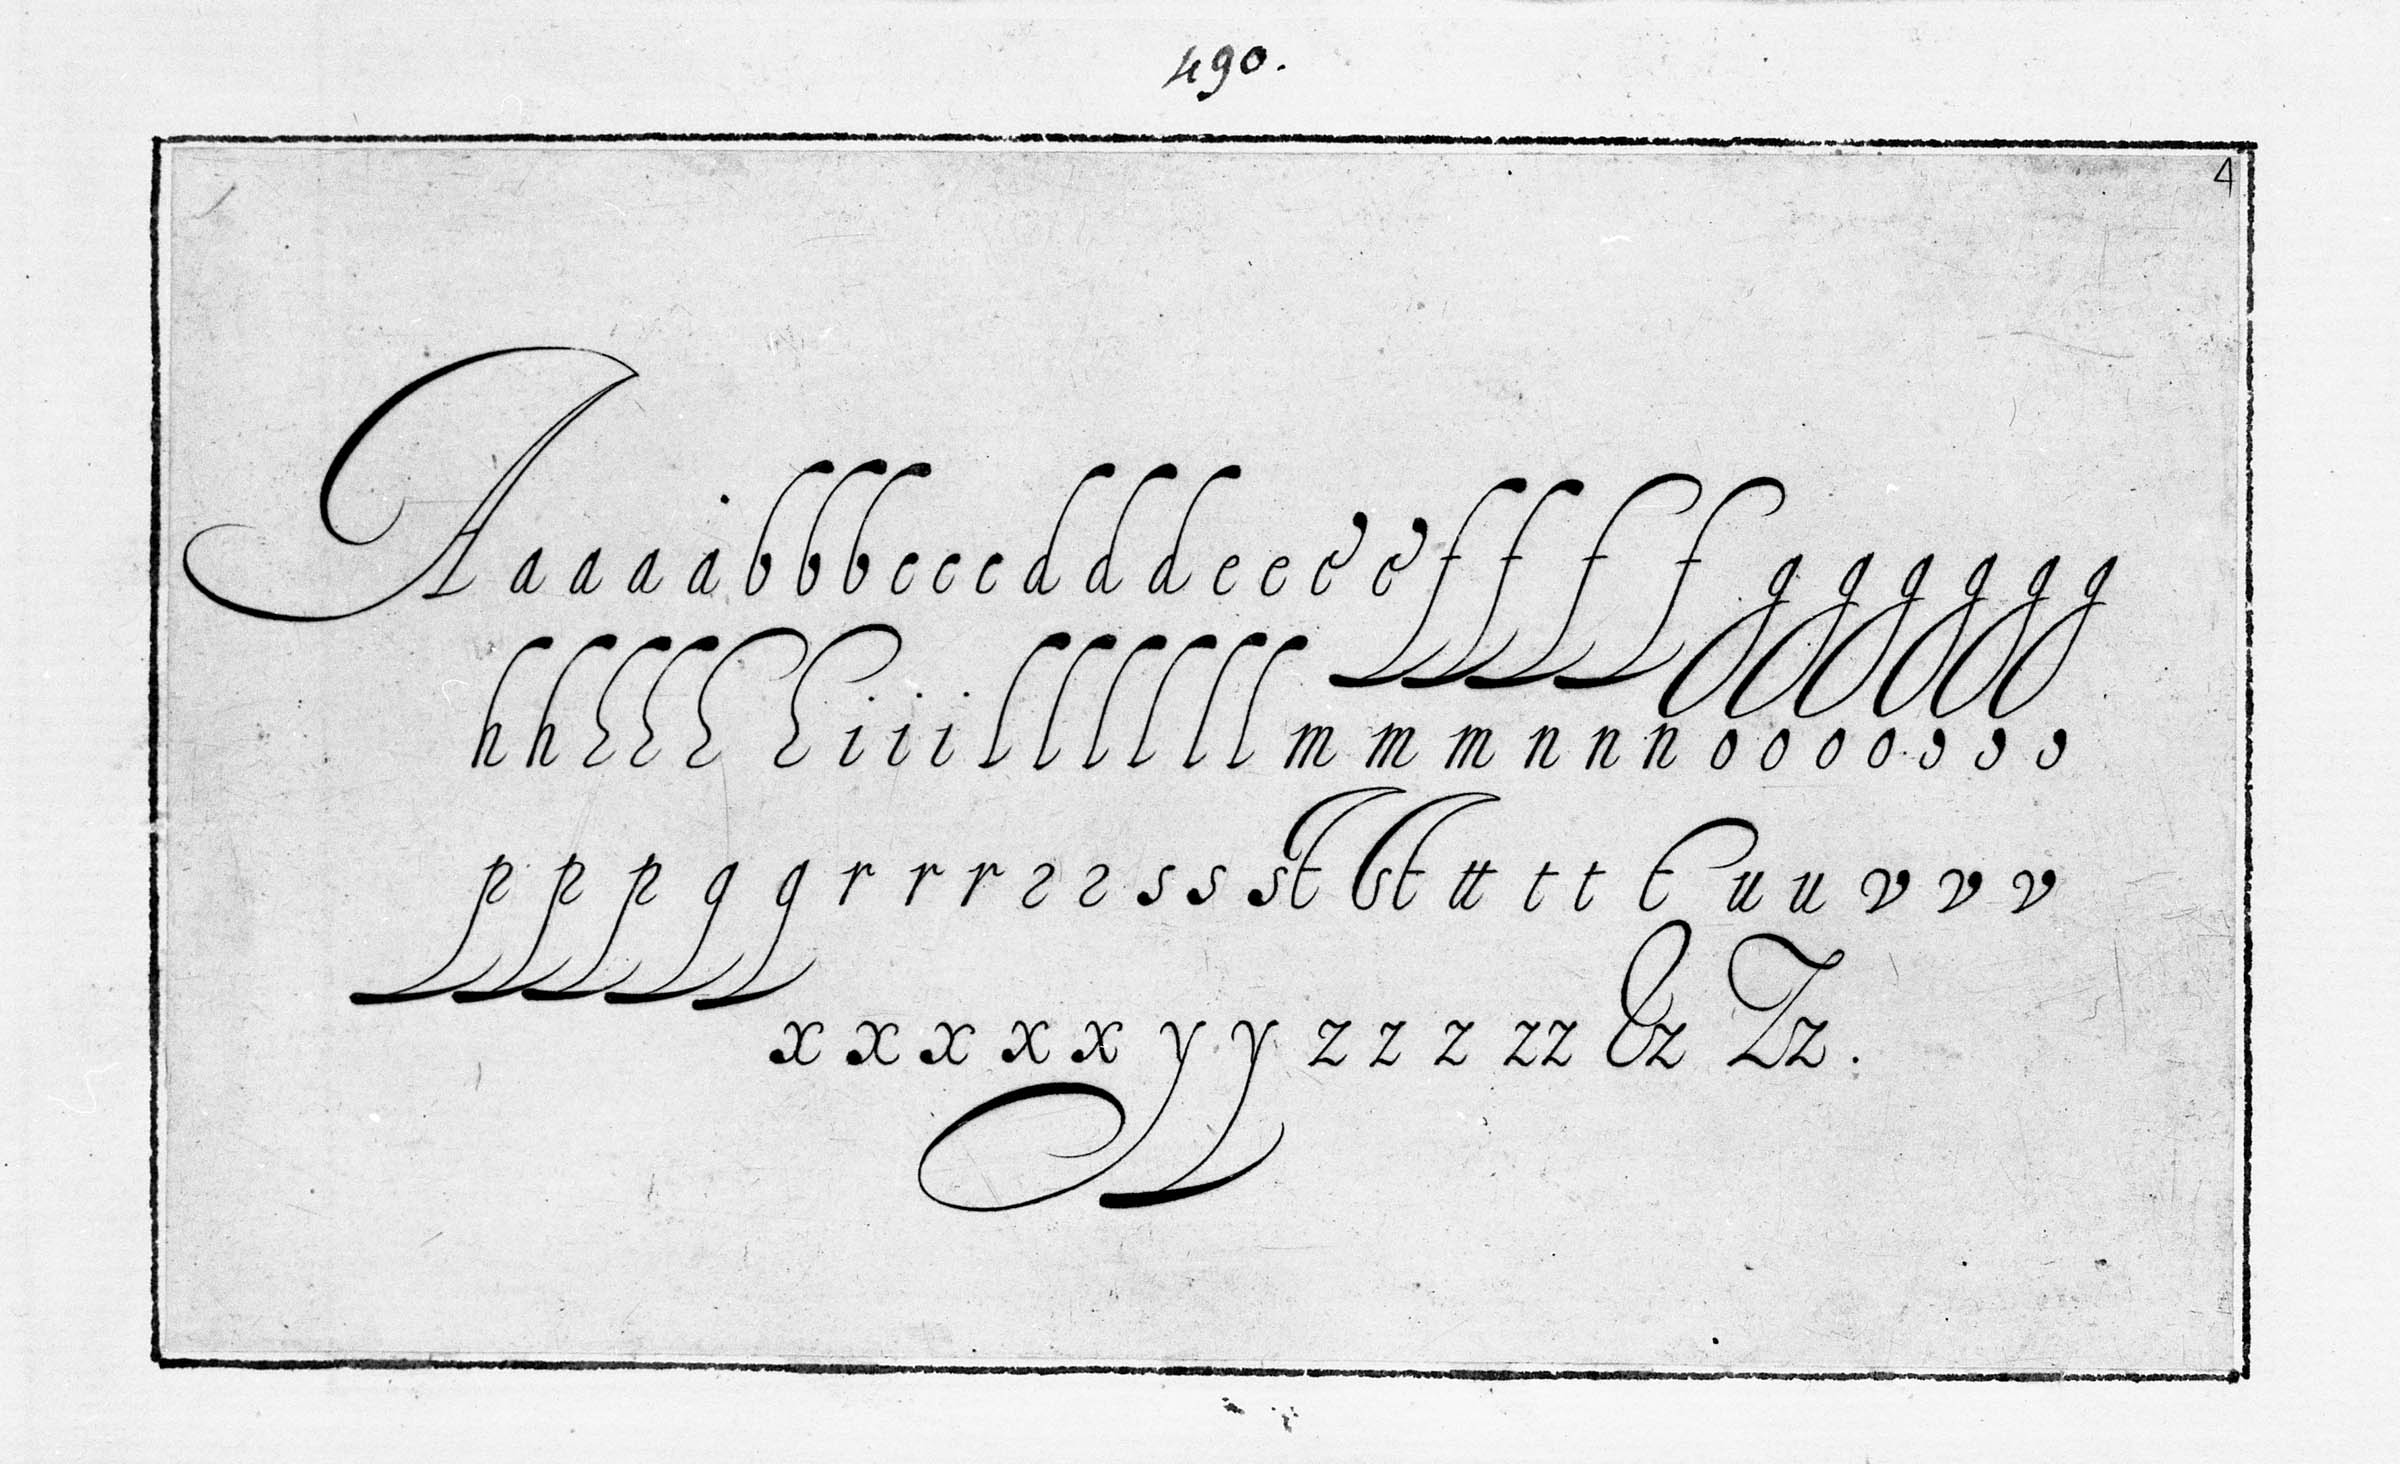 490.
4
A a a a a b b b c c c d d d e e e e f f f f g g g g g g
h h h h h h i i i l l l l l l m m m n n n o o o o o o o
p p p q q r r r 2 2 s s st st tt t t t u u v v v
x x x x x y y z z z zz &z Zz.